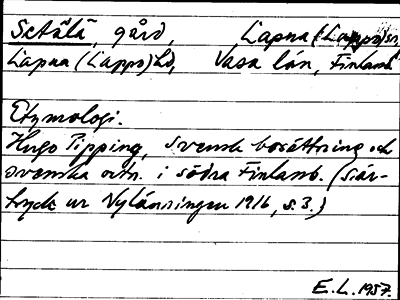 Setälä, gård, Lapua (Lappo) sn,
Lapua (Lappo) hd, Vasa län, Finland
Etymologi.
Hugo Pipping, Svensk bosättning och
svenska ortn. i södra Finland. (Sär-
tryck ur Nylänningen 1916, s. 3.)
E.L. 1957.